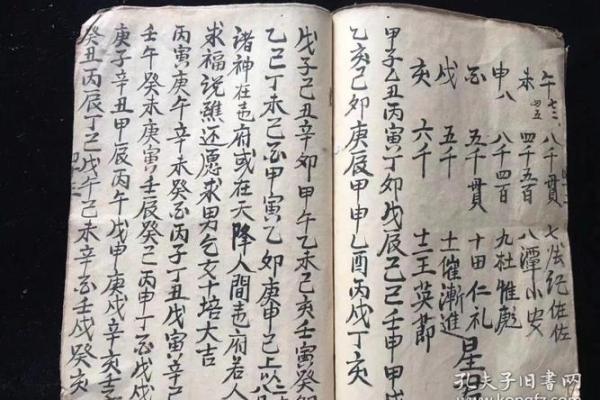 午 七三 八千貫 七
未 四五 四千五百 八潭小安
申八 八千四百 九杜惟彪
酉 五千貫 十田仁礼
戌 五千 十一崔漸進
亥 六千 十二王英莭
星
甲子乙丑丙寅丁卯戊辰己巳壬申甲戌
乙亥己卯庚辰甲申乙酉丙戌丁亥
戊子己丑辛卯甲午乙未己亥壬寅癸卯
乙巳丁未己酉甲寅乙卯庚申已上以
諸神在地府或在天降人間地府若人
求福説醮还愿求男乞女十培大吉
丙寅庚午辛未癸酉丙子丁丑戊寅辛巳
壬午癸未庚寅壬辰癸巳丙申丁酉戊戌
庚子辛丑甲辰丙午戊申庚戌辛亥壬
癸丑丙辰丁巳戊午己未辛酉壬戌癸亥
孔夫子旧書网
www.kongfz.com